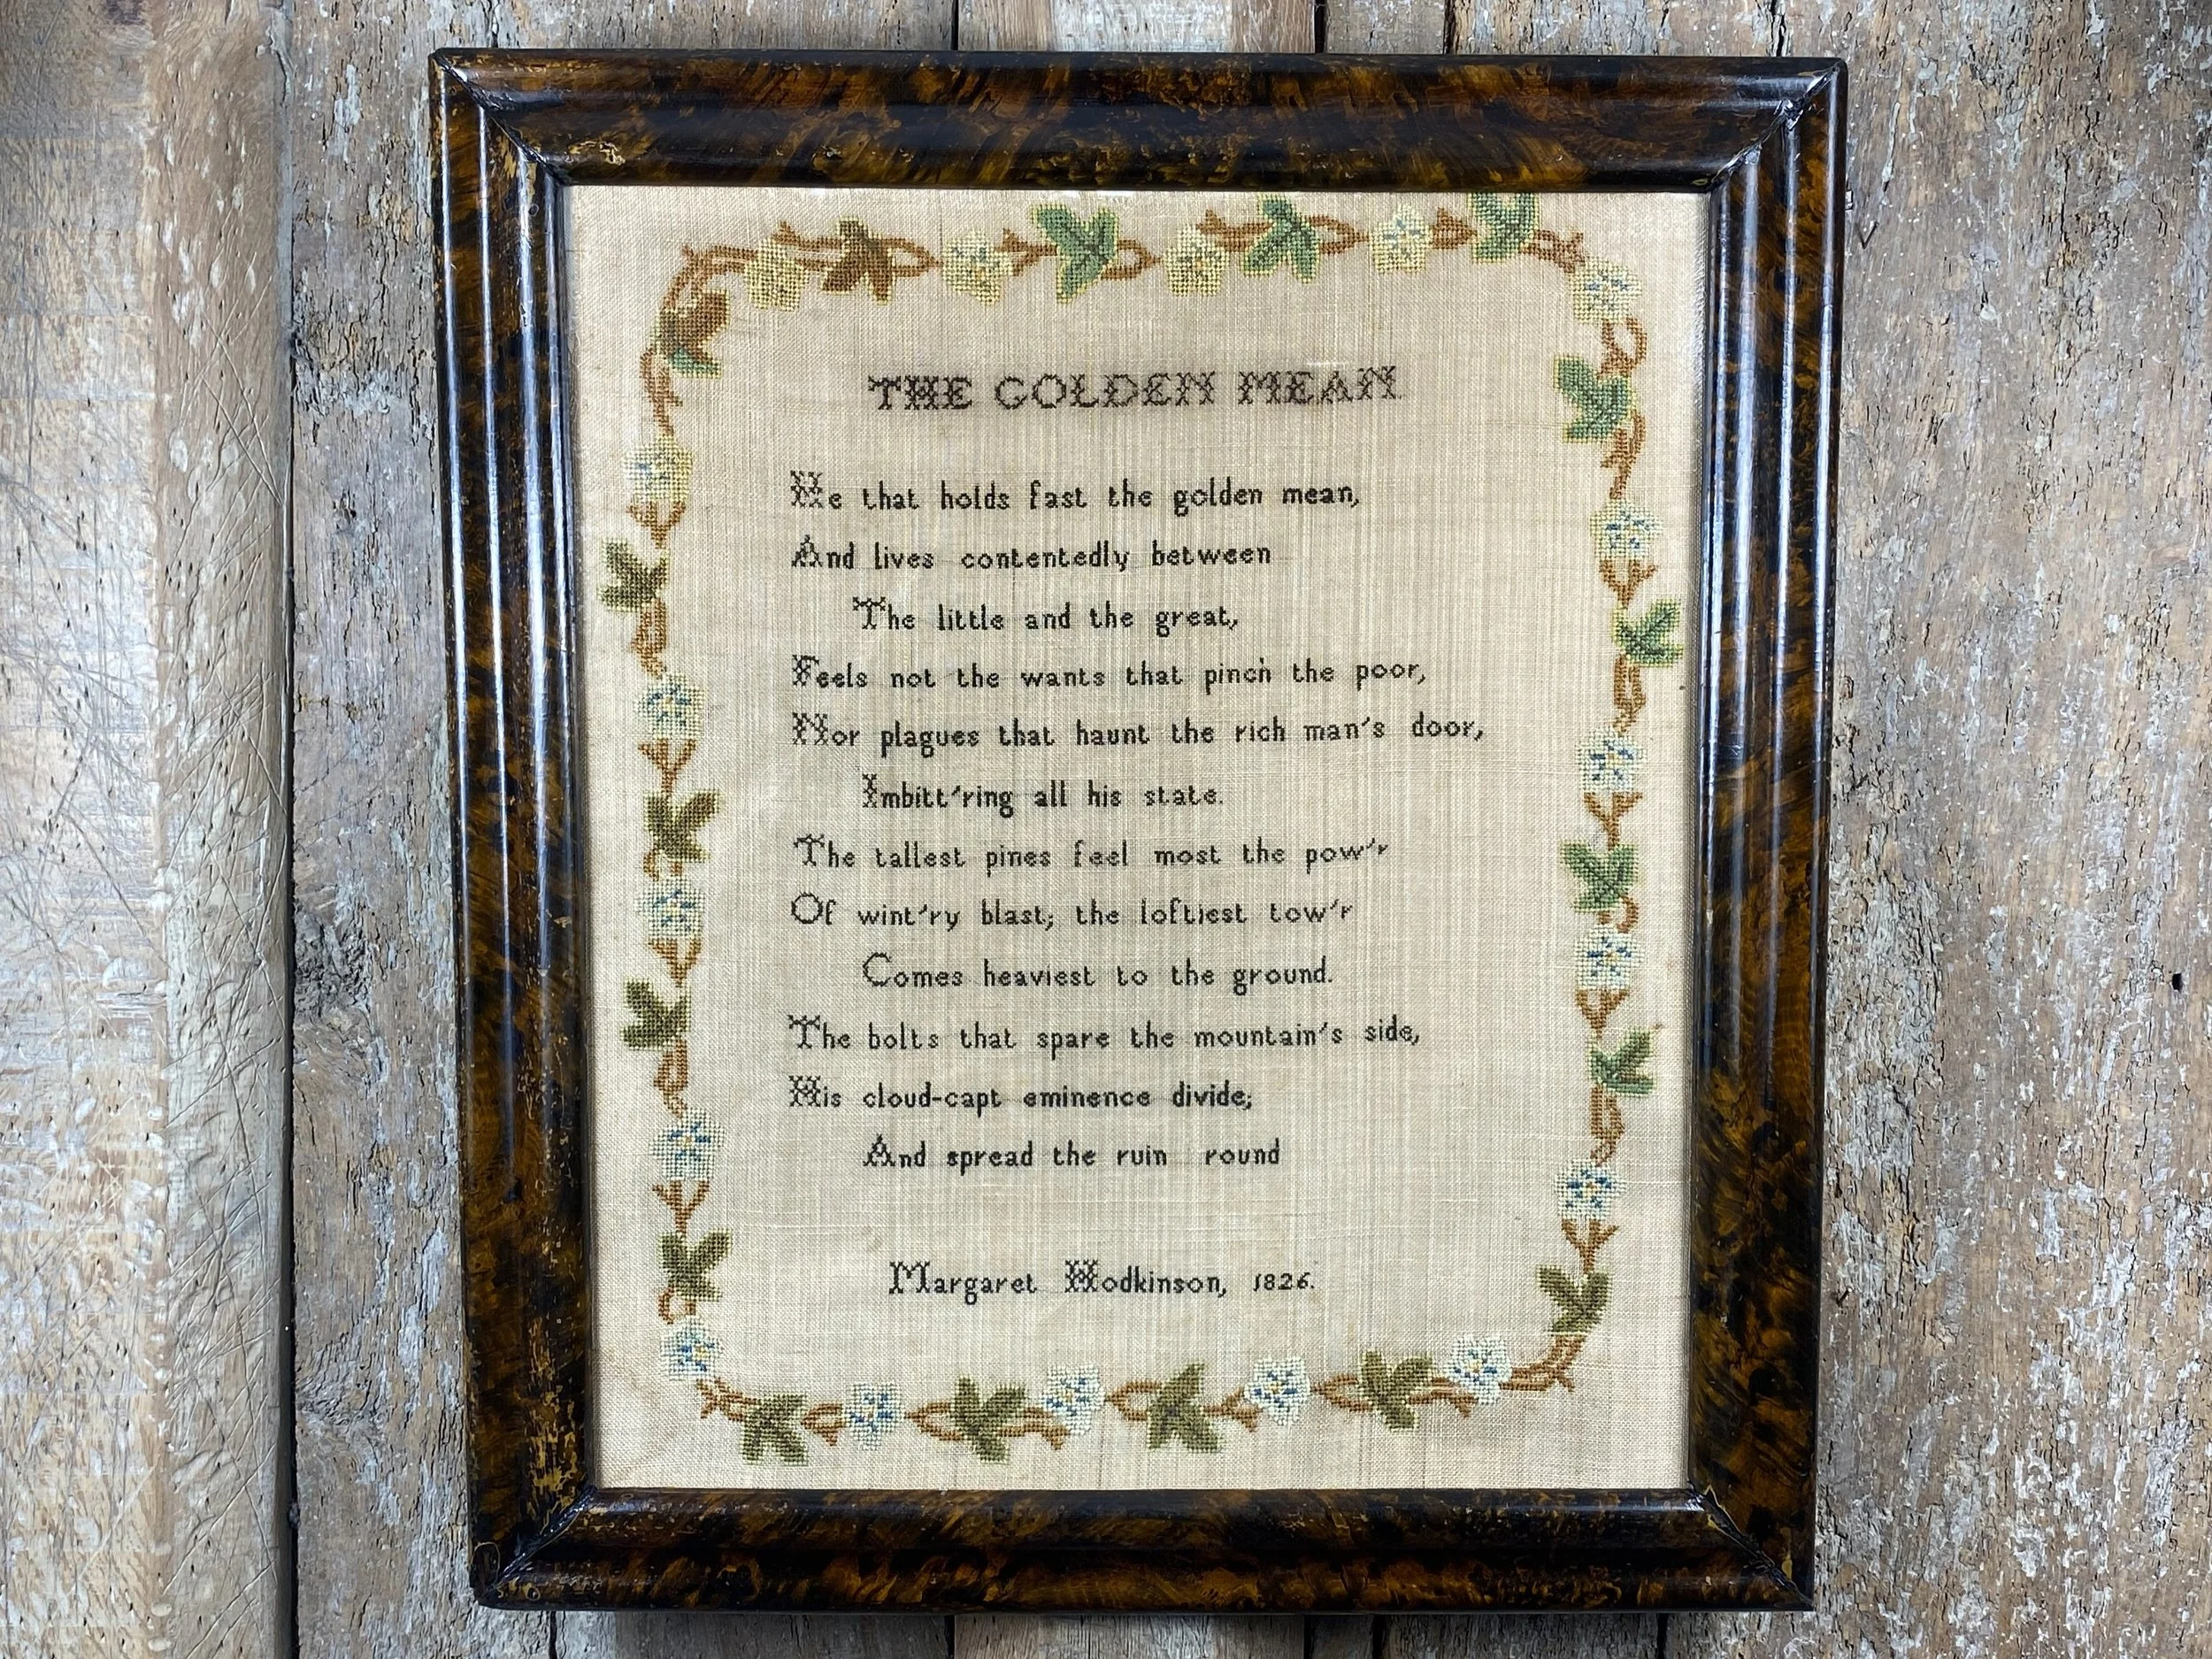 THE GOLDEN MEAN
He that holds fast the golden mean,
And lives contentedly between
The little and the great,
Feels not the wants that pinch the poor,
Nor plagues that haunt the rich man's door,
Imbitt'ring all his state.
The tallest pines feel most the pow'r
Of wint'ry blast; the loftiest tow'r
Comes heaviest to the ground.
The bolts that spare the mountain's side,
His cloud-capt eminence divide;
And spread the ruin round
Margaret Hodkinson, 1826.